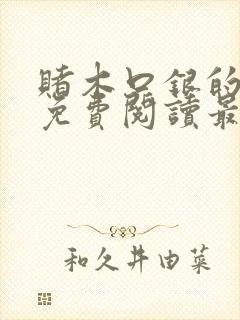 賭木口銀的
免費閱讀最
和久井由菜